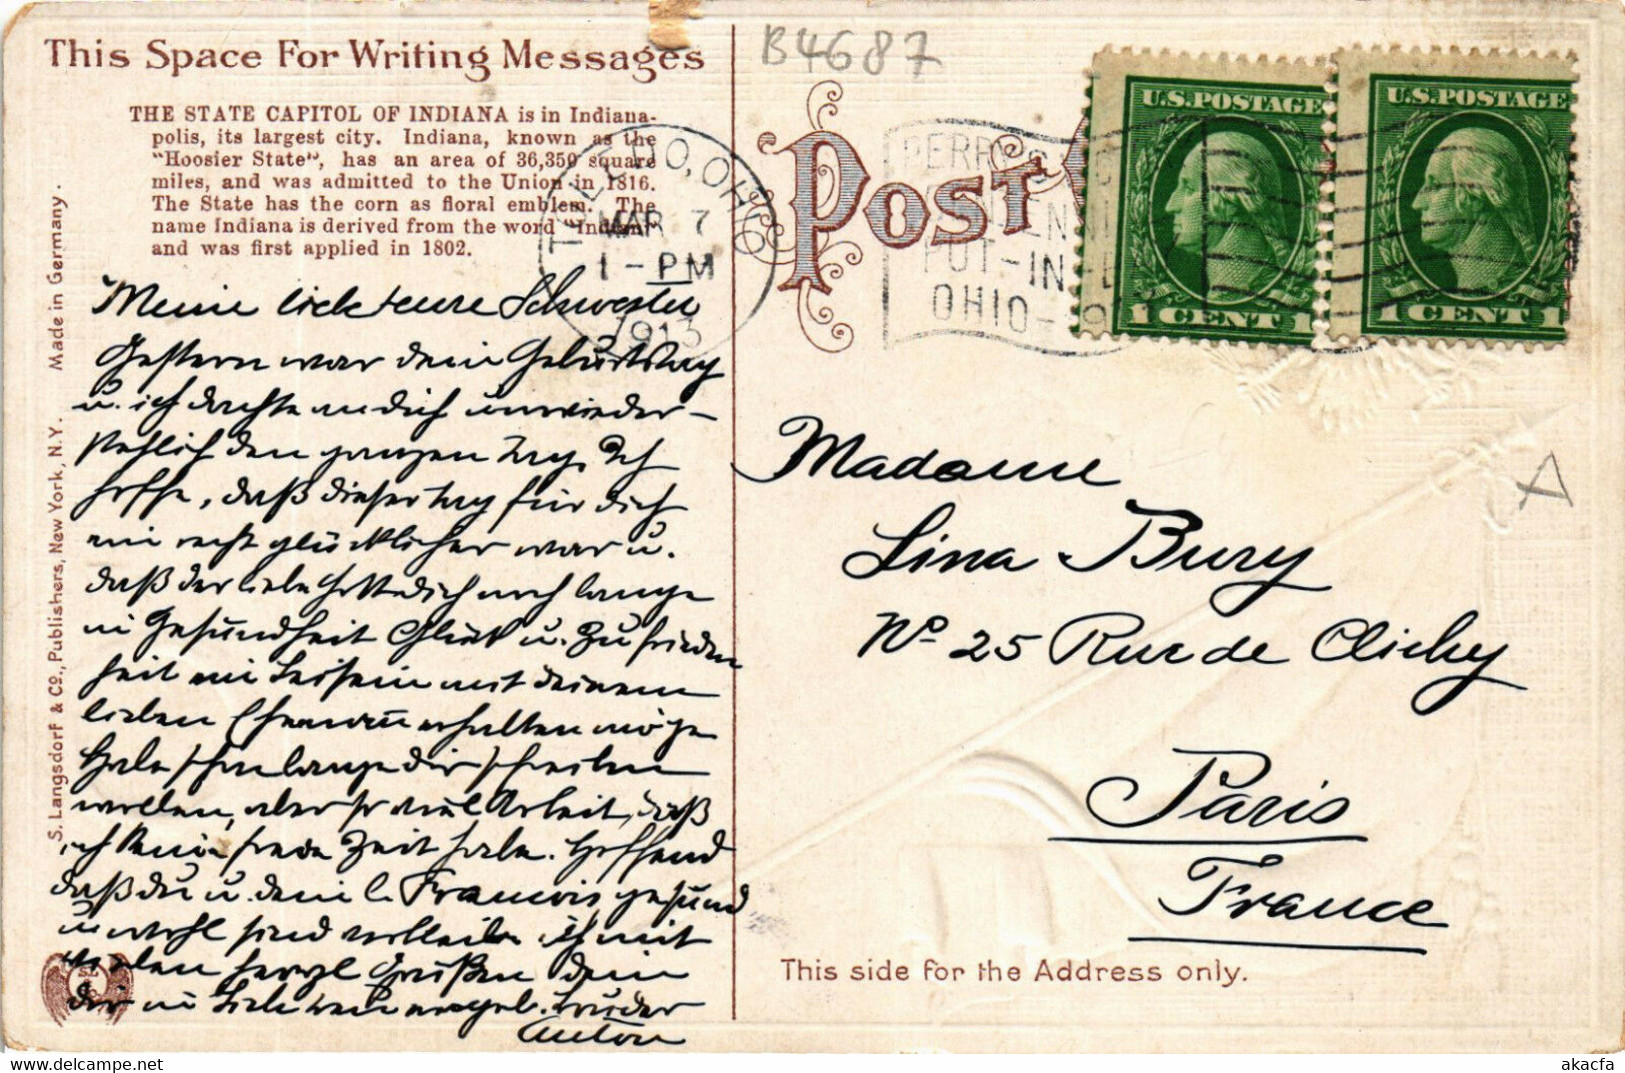 B4687
This Space For Writing Messages
THE STATE CAPITOL OF INDIANA is in Indiana-
polis, its largest city. Indiana, known as the
"Hoosier State", has an area of 36,350 square
miles, and was admitted to the Union in 1816.
The State has the corn as floral emblem. The
name Indiana is derived from the word "Indian"
and was first applied in 1802.
Made in Germany.
S. Langsdorf & Co., Publishers, New York, N.Y.
TOLEDO, OHIO
MAR 7
1-PM
1913
POST
PERRY'S
PUT-IN-B
OHIO-191
U.S. POSTAGE
1 CENT 1
U.S. POSTAGE
1 CENT 1
Meine liebe teure Schwester
Gestern war dein Geburtstag
u. ich dachte an dich unwieder-
stehlich den ganzen Tag. Ich
hoffe, daß dieser tag für dich
ein recht glücklicher war u.
daß der liebe Gott dich noch lange
in Gesundheit Glück u. Zufrieden
heit mit deinem
lieben Ehemann erhalten möge
Habe schon lange dir schreiben
wollen, aber so viel Arbeit, daß
ich keine freie Zeit habe. Hoffend
daß du u. dein l. Francois gesund
u. wohl sind verbleibe ich mit
vielen herzl Grüßen dein
dir in Liebe Bruder
Anton
Madame
Lina Bury
No 25 Rue de Clichy
Paris
France
A
This side for the Address only.
akacfa